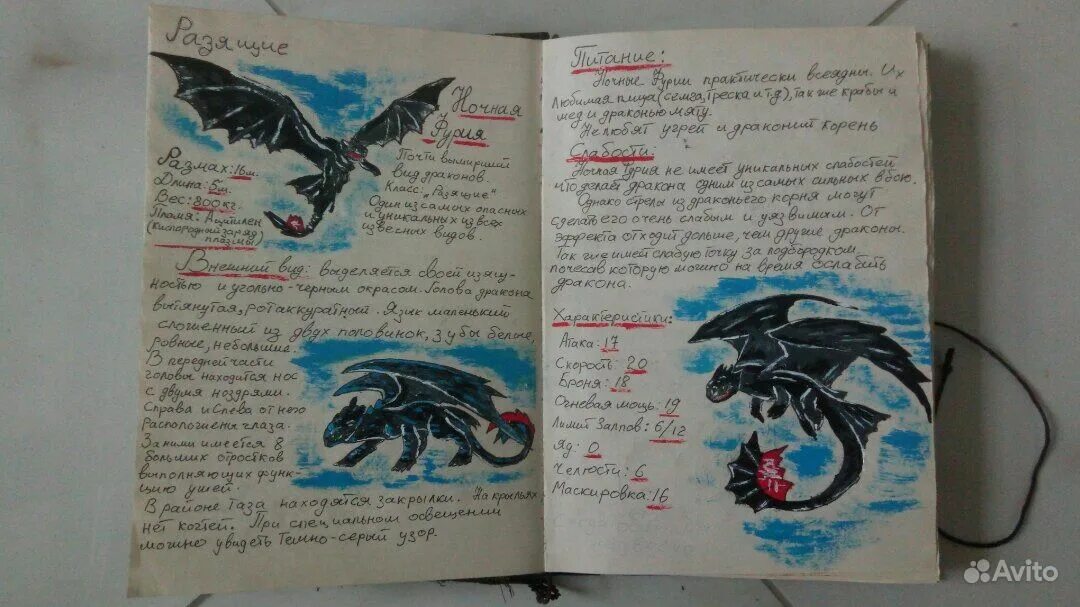 Разящие
Ночная
Фурия
Размах: 16м.
Длина: 5м.
Вес: 800кг.
Пламя: Ацитилен
(кислородный заряд
плазмы)
Почти вымерший
вид драконов.
Класс: „Разящие"
Один из самых опасных
и уникальных из всех
известных видов.
Внешний вид: выделяется своей изящ-
ностью и угольно-чёрным окрасом. Голова дракона
вытянутая, рот аккуратный. Язык маленький
сложенный из двух половинок, зубы белые,
ровные, небольшие.
В передней части
головы находится нос
с двумя ноздрями.
Справа и слева от него
расположены глаза.
За ними имеется 8
больших отростков
выполняющих функ-
цию ушей.
В районе таза находятся закрылки. На крыльях
нет когтей. При специальном освещении
можно увидеть тёмно-серый узор.
Питание:
Ночные Фурии практически всеядны. Их
любимая пища (сёмга, треска и т.д), так же крабы и
мёд и драконью мяту.
Не любят угрей и драконий корень
Слабости:
Ночная Фурия не имеет уникальных слабостей
что делает дракона одним из самых сильных в бою.
Однако стрелы из драконьего корня могут
сделать его очень слабым и уязвимым. От
эффекта отходит дольше, чем другие драконы.
Так же имеет слабую точку за подбородком,
почесав которую можно на время ослабить
дракона.
Характеристики:
Атака: 17
Скорость: 20
Броня: 18
Огневая мощь: 19
Лимит Залпов: 6/12
Яд: 0
Челюсти: 6
Маскировка: 16
Avito